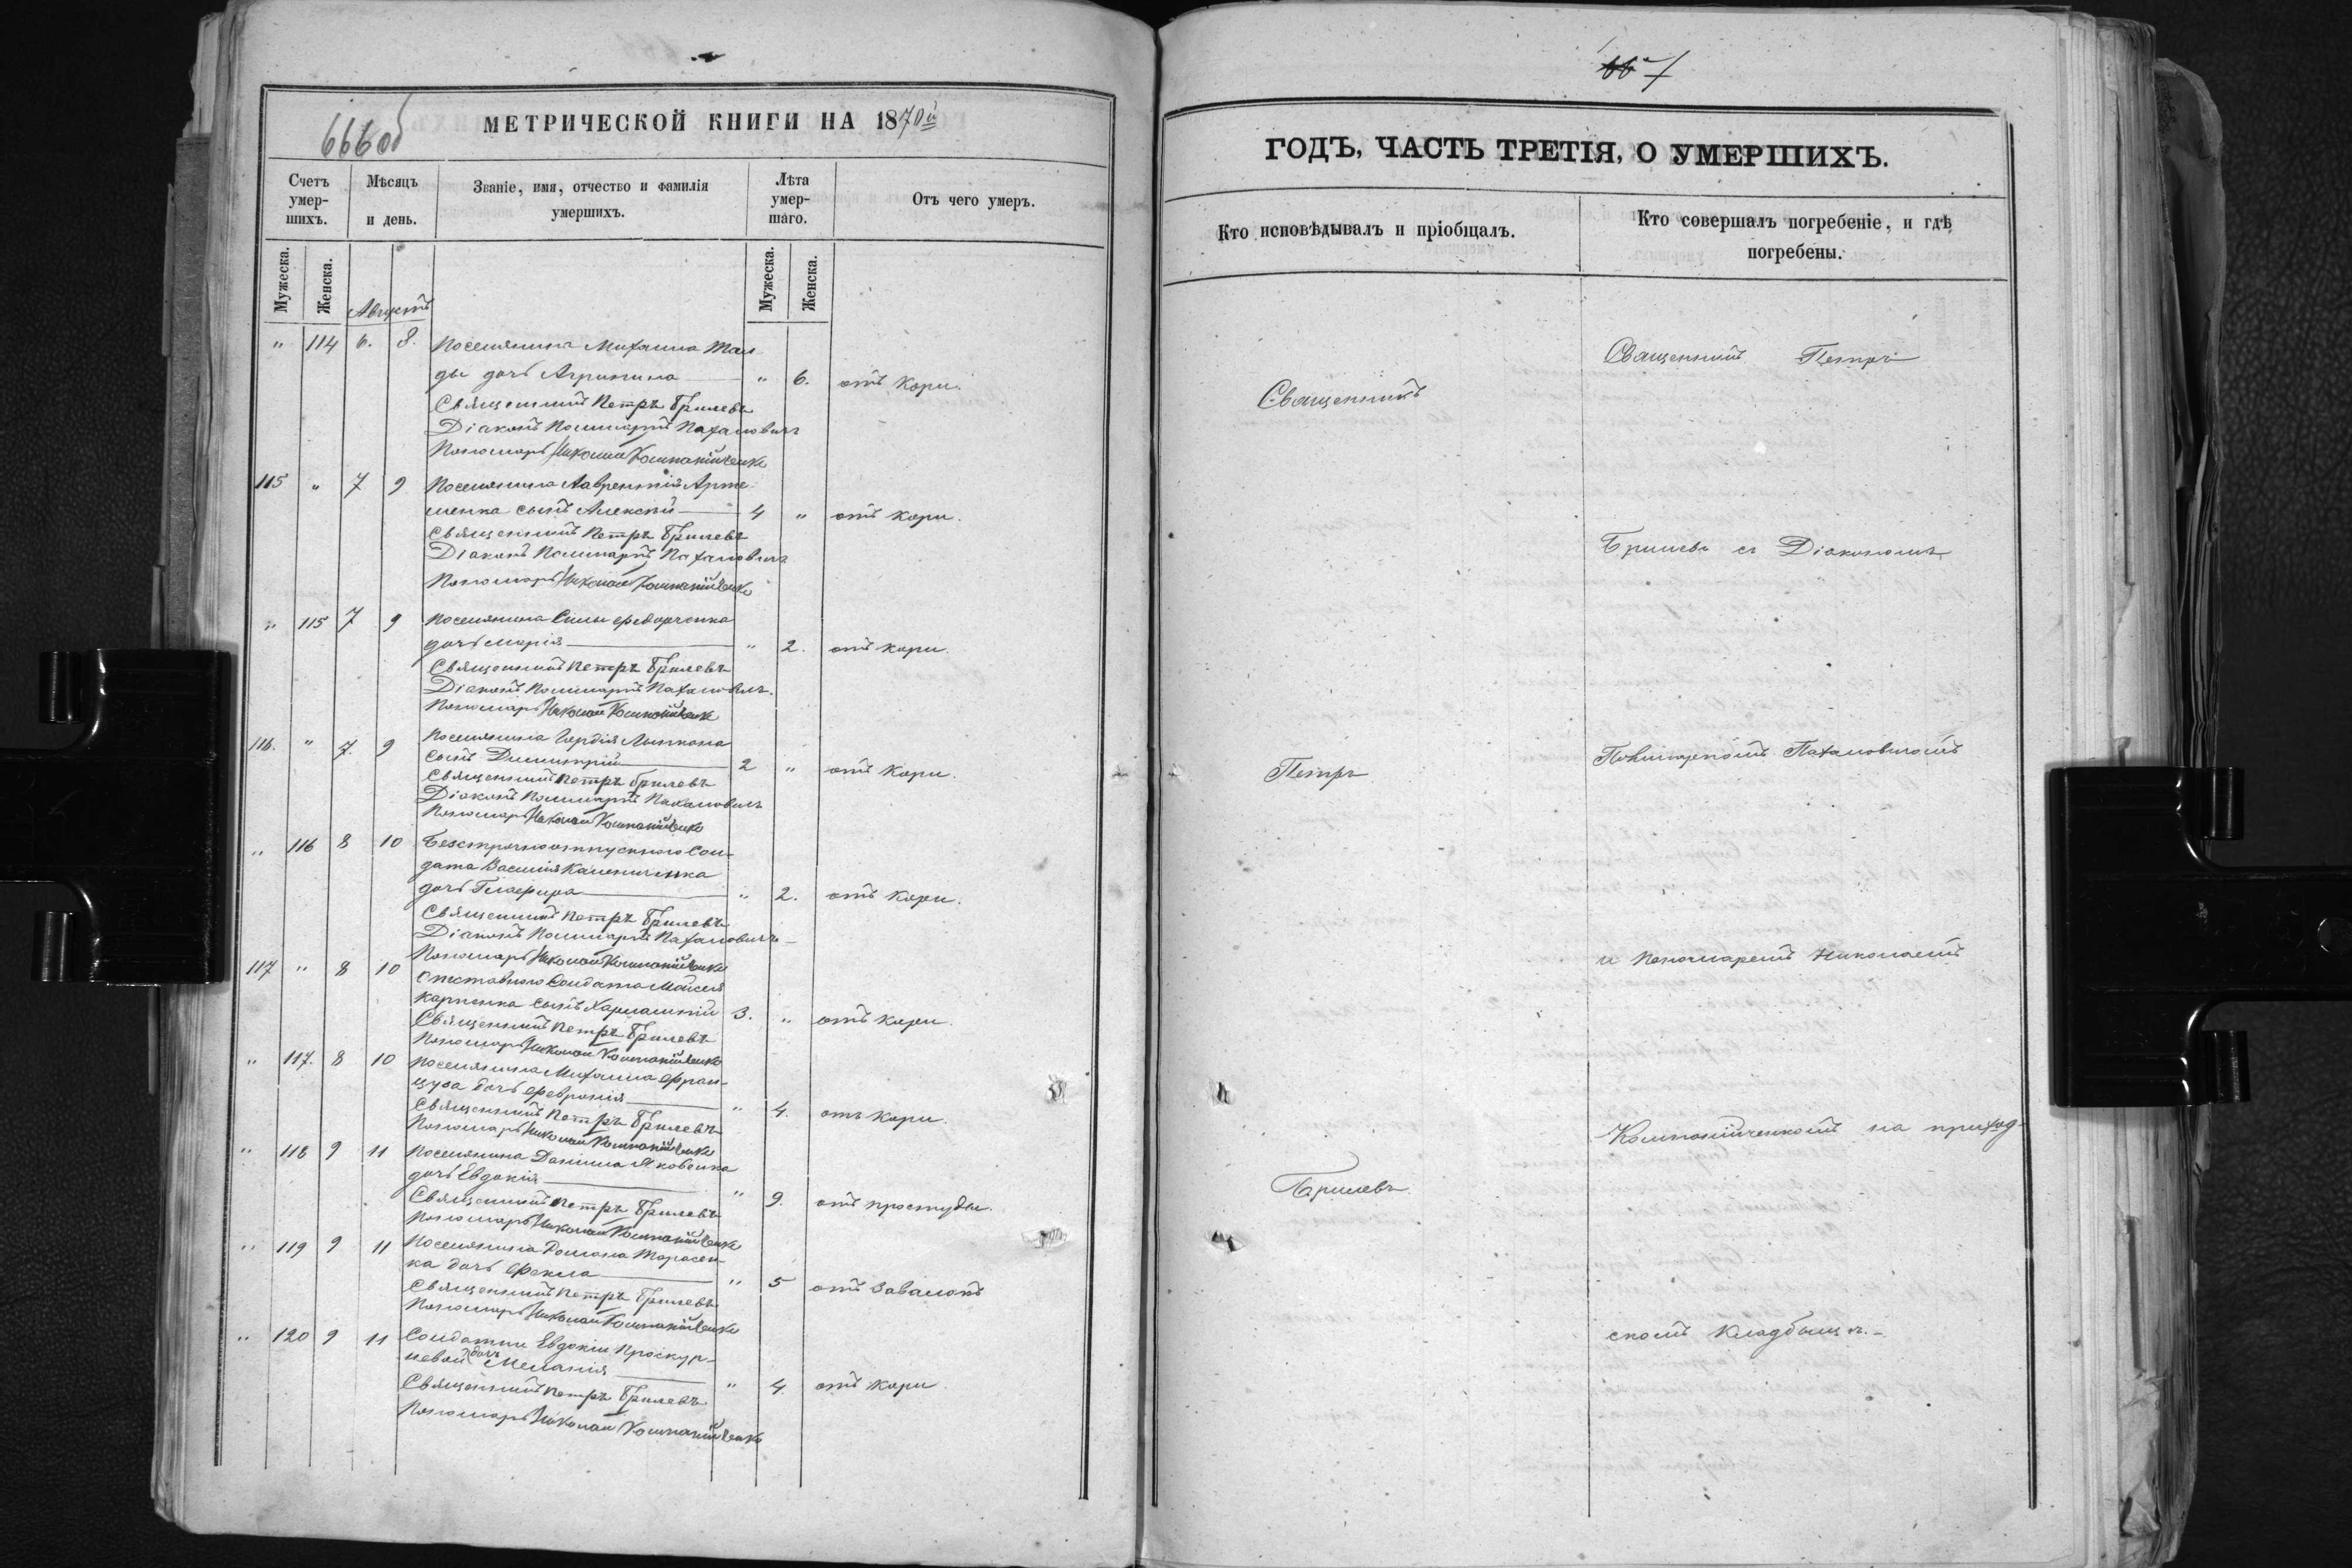 666об
МЕТРИЧЕСКОЙ КНИГИ НА 1870й
Счетъ умер-шихъ.
Мѣсяцъ и день.
Званіе, имя, отчество и фамилія умершихъ.
Лѣта умер-шаго.
Отъ чего умеръ.
Мужеска. Женска.
Мужеска. Женска.
Августъ
" 114 6. 8. Поселянина Михаила
ды дочь Агрипина " 6. отъ Кори.
Священникъ Петръ Брилевъ
Діаконъ Поликарпъ Пахаловичъ
Пономарь Николай Компанійченко
115 " 7 9 Поселянина Лаврентія Арте-
менка сынъ Алексѣй 4 " отъ Кори.
Священникъ Петръ Брилевъ
Діаконъ Поликарпъ Пахаловичъ
Пономарь Николай Компанійченко
" 115 7 9 Поселянина Силы Ѳеворченка
дочь Марія " 2. отъ Кори.
Священникъ Петръ Брилевъ
Діаконъ Поликарпъ Пахаловичъ.
Пономарь Николай Компанійченко
116. " 7. 9 Поселянина Гордія
сынъ Димитрій 2 " отъ Кори.
Священникъ Петръ Брилевъ
Діаконъ Поликарпъ Пахаловичъ
Пономарь Николай Компанійченко
" 116 8 10 Безсрочноотпускного Сол-
дата Василія Калениченка
дочь Глафира " 2. отъ Кори.
Священникъ Петръ Брилевъ
Діаконъ Поликарпъ Пахаловичъ
Пономарь Николай Компанійченко
117 " 8 10 Отставного Солдата Моисея
Карпенка сынъ Харлампій 3. " отъ Кори.
Священникъ Петръ Брилевъ
Пономарь Николай Компанійченко
" 117. 8 10 Поселянина Михаила Фран-
цуза дочь Ѳевронія " 4. отъ Кори.
Священникъ Петръ Брилевъ
Пономарь Николай Компанійченко
" 118 9 11 Поселянина Даніила Яковенка
дочь Евдокія " 9. отъ простуды.
Священникъ Петръ Брилевъ
Пономарь Николай Компанійченко
" 119 9 11 Поселянина Романа Тарасен-
ка дочь Ѳекла " 5 отъ Завалокъ
Священникъ Петръ Брилевъ
Пономарь Николай Компанійченко
" 120 9 11 Солдатки Евдокіи Проскур-
невой дочь Меланія " 4. отъ Кори
Священникъ Петръ Брилевъ
Пономарь Николай Компанійченко
ГОДЪ, ЧАСТЬ ТРЕТІЯ, О УМЕРШИХЪ.
Кто исповѣдывалъ и пріобщалъ.
Кто совершалъ погребеніе, и гдѣ погребены.
Священникъ
Петръ
Брилевъ
Священникъ Петръ
Брилевъ съ Діакономъ
Поликарпомъ Пахаловичомъ
и Пономаремъ Николаемъ
Компанійченкомъ на приход-
скомъ Кладбищѣ.